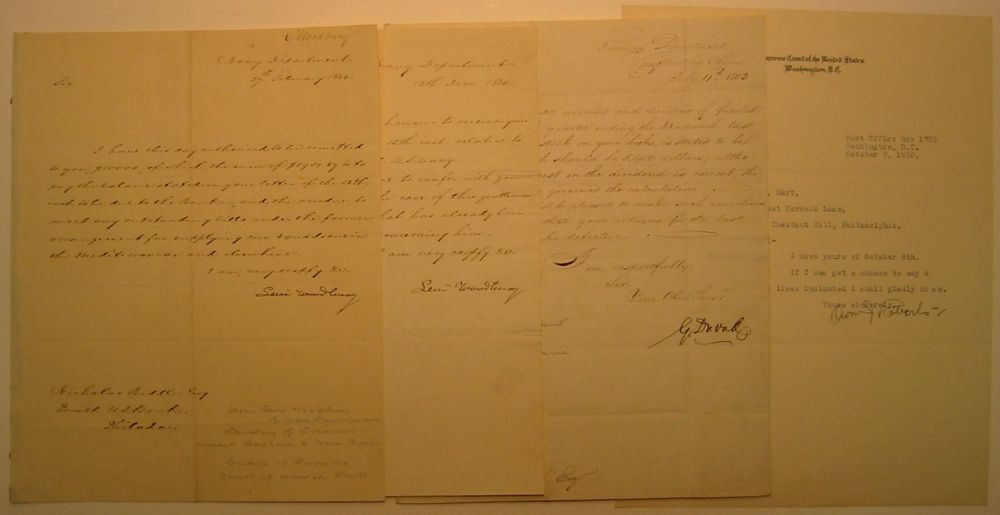 Woodbury
Navy Department
27th February 1834.
Sir
I have this day authorized to be remitted
to you, of which, the sum of is to
pay the balance stated in your letter of the 25th
inst. to be due to the Bank, and the residue, to
meet any outstanding bills under the former
arrangement for supplying our Squadrons in
the Mediterranean and elsewhere.
I am, very respfy &c.
Levi Woodbury
Nicholas Biddle Esq
Presdt U.S. Bank.
Philada.
Hon. Levi Woodbury
Secretary of Treasury
under Jackson & Van Buren
Judge of Supreme
Court of United States
Navy Department
13th Decr 183
honour to receive your
12th inst. relative to
to confer with you
case of this gentleman
that has already been
concerning him.
I am very respfy &c.
Levi Woodbury
Treasury Department
Comptroller's Office
July 11th 1803
account and dividend of funded
quarter ending the 31 March last
stock on your books, is stated to be
should be 5400 dollars; altho
in the dividend is correct, the
governed the calculation.
be pleased to make such corrections
that your returns for the last
be defective.
I am, respectfully,
Sir,
Your Obed Servt
G. Duvall
Esq
Supreme Court of the United States
Washington, D.C.
Post Office Box 1735
Washington, D.C.
October 9, 1930.
Hart,
East Mermaid Lane,
Chestnut Hill, Philadelphia.
I have yours of October 8th.
If I can get a chance to say a
lines indicated I shall gladly do so.
Yours sincerely,
Owen J Roberts